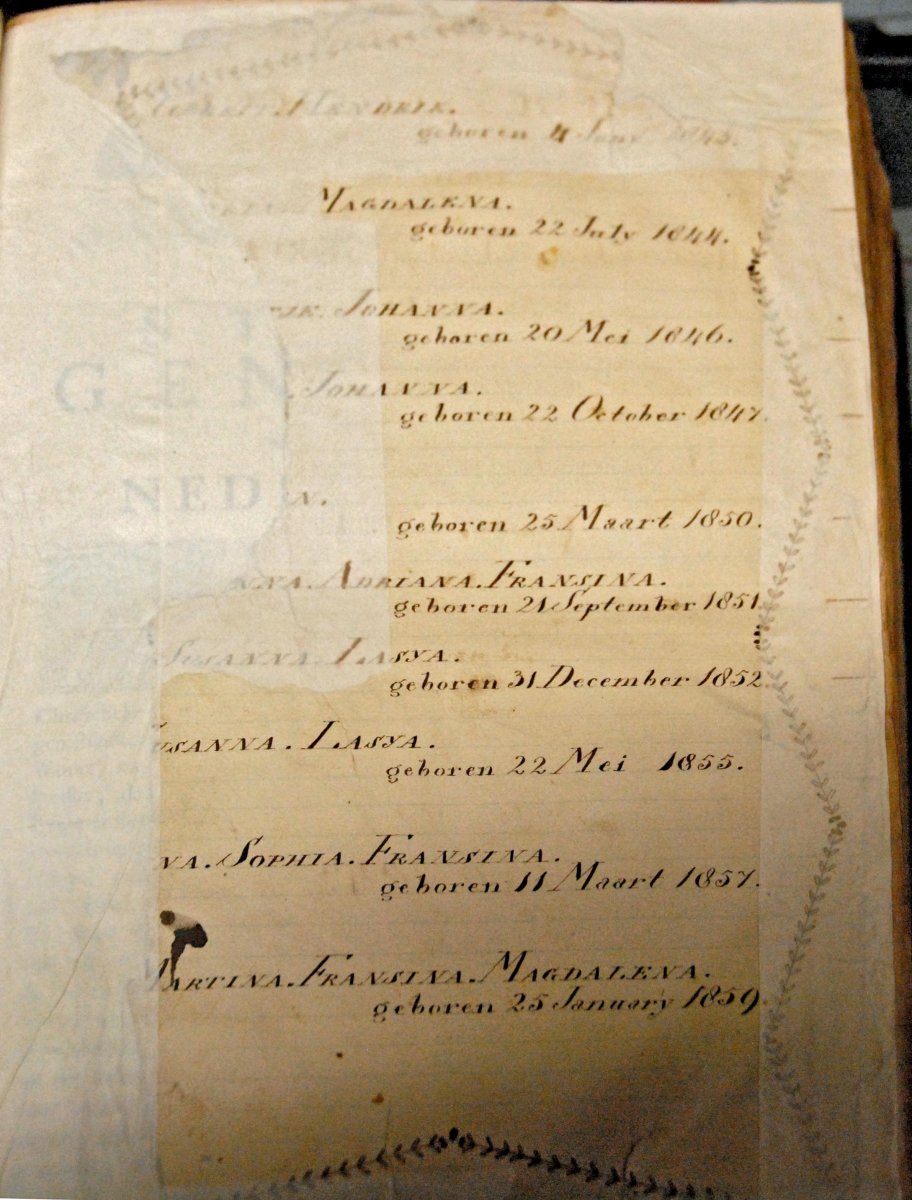 HENDRIK.
geboren 4 1843.
MAGDALENA.
geboren 22 July 1844.
JOHANNA.
geboren 20 Mei 1846.
JOHANNA.
geboren 22 October 1847.
GEN
NED
N.
geboren 25 Maart 1850.
NNA. ADRIANA. FRANSINA.
geboren 21 September 1851
SUSANNA. LASYA.
geboren 31 December 1852
USANNA. LASYA.
geboren 22 Mei 1855.
NA. SOPHIA. FRANSINA.
geboren 11 Maart 1857.
MARTINA. FRANSINA. MAGDALENA.
geboren 25 January 1859